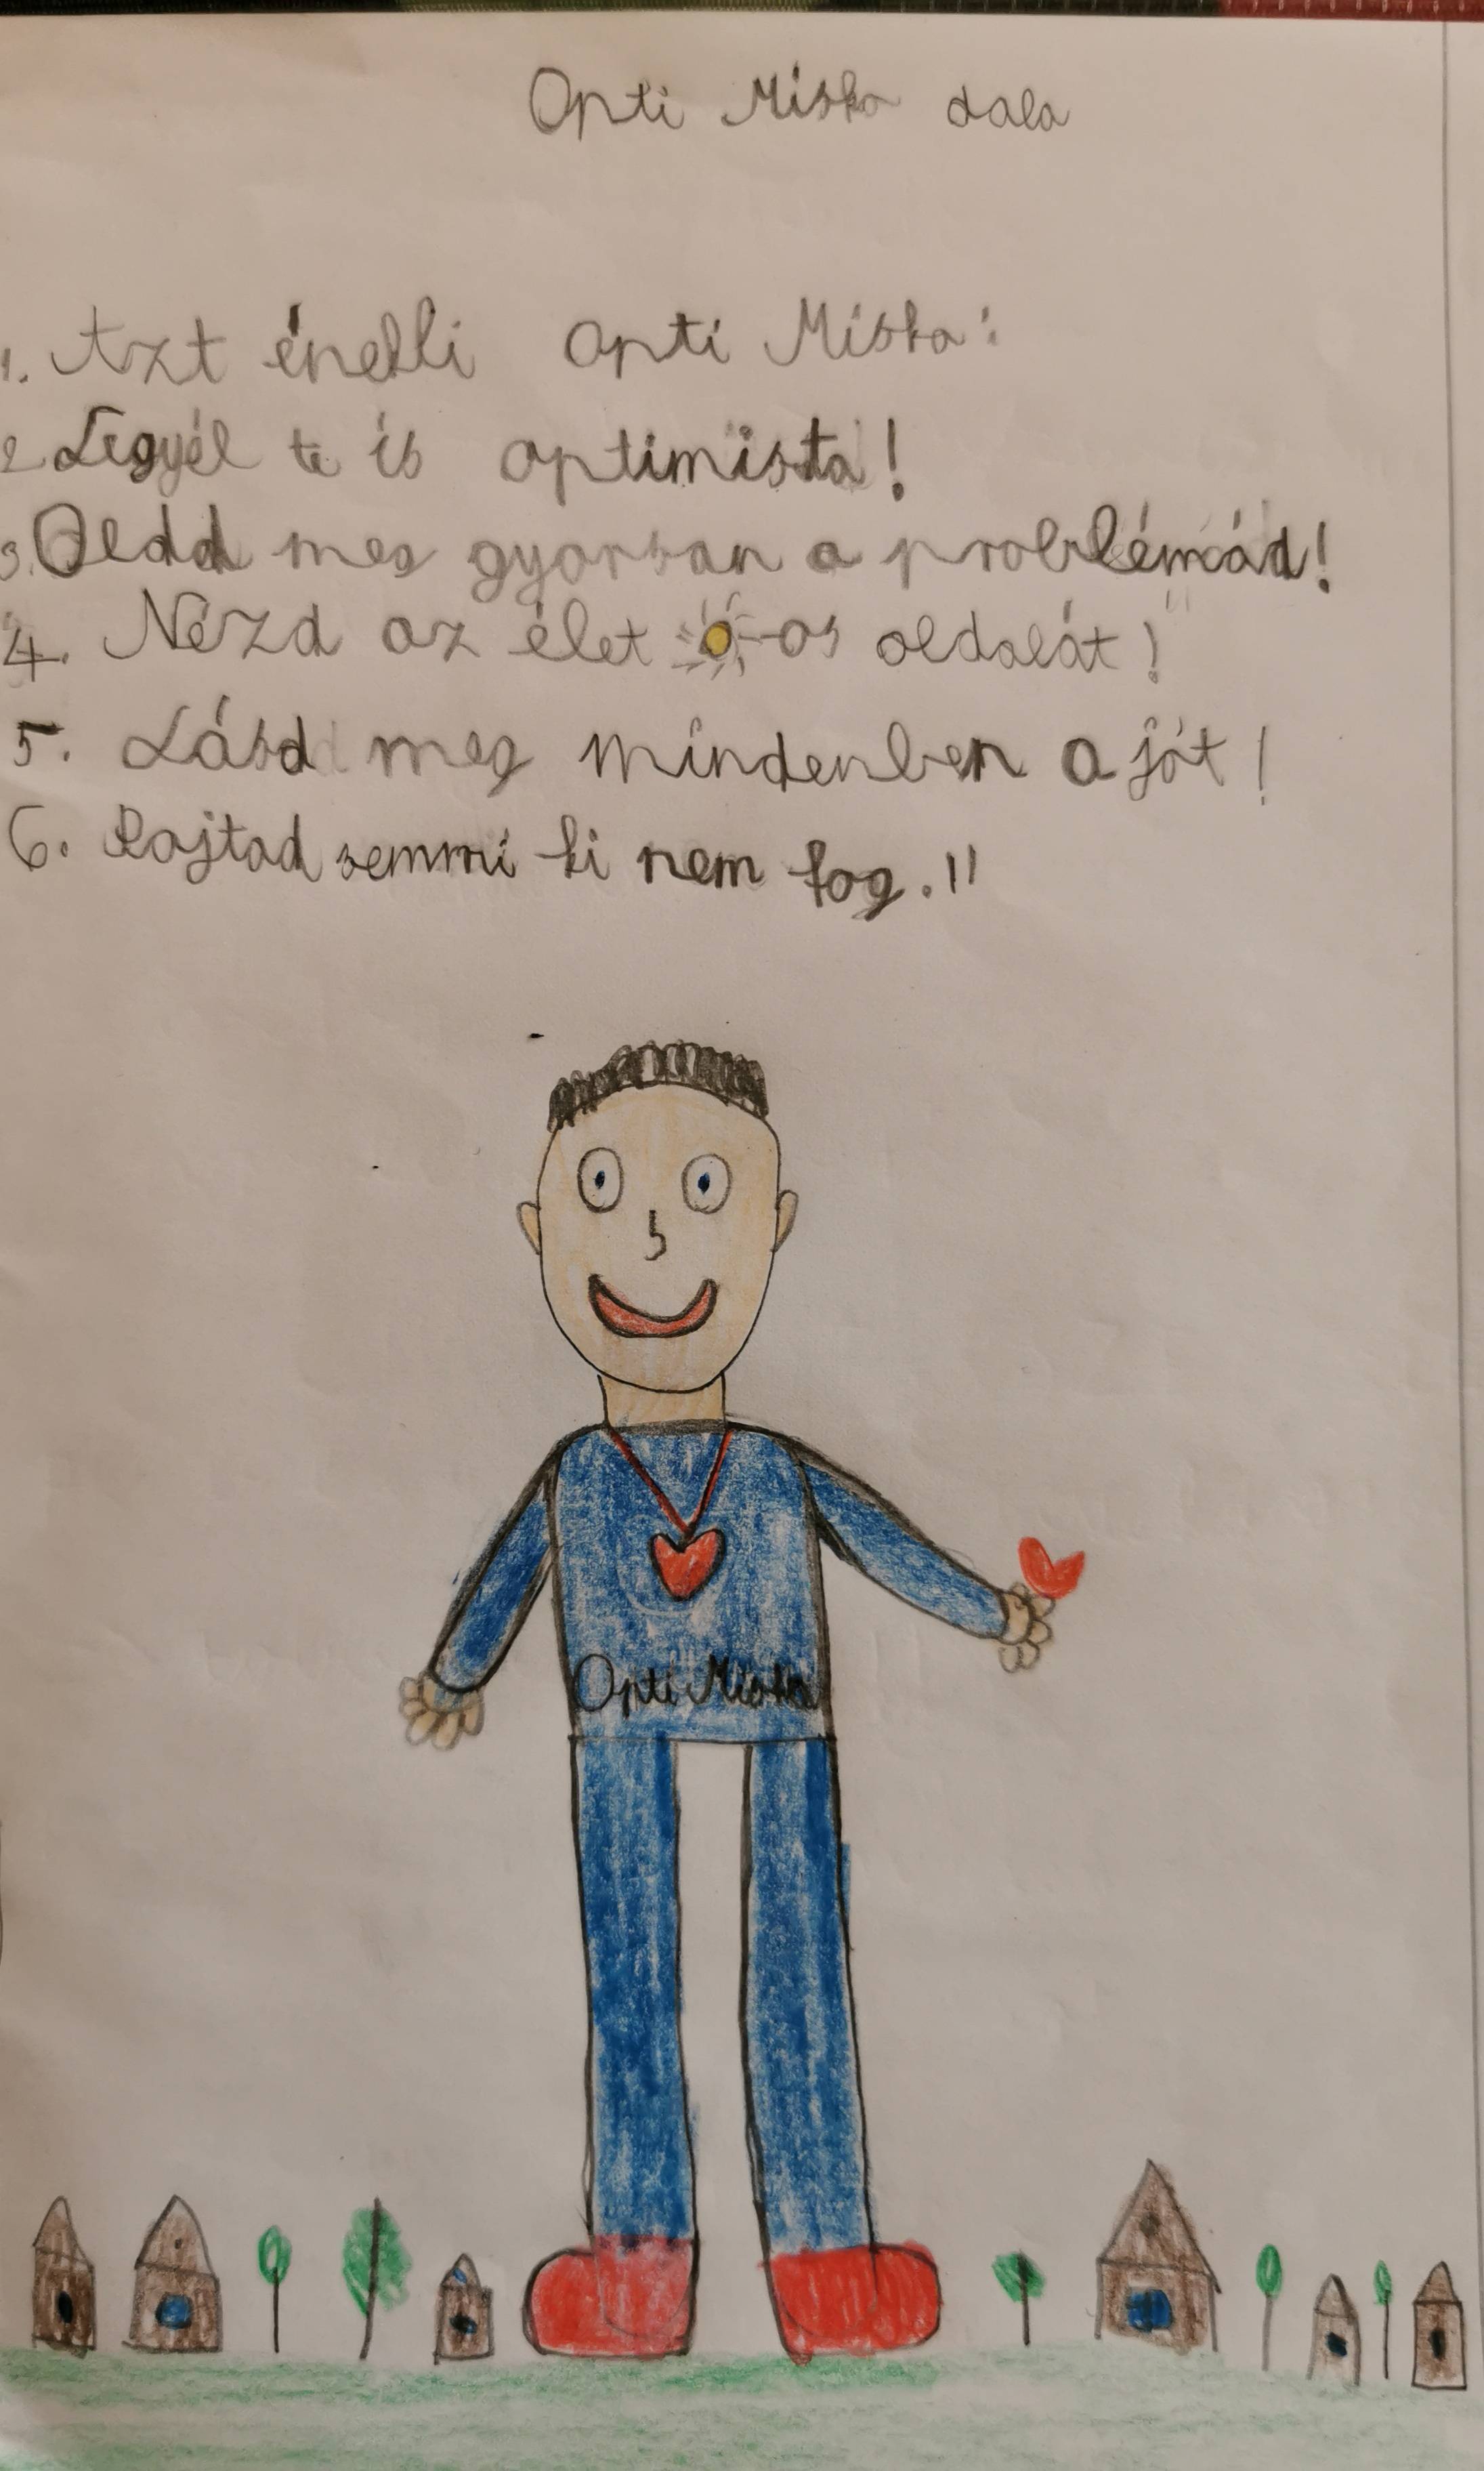 Opti Miska dala
1. Azt énekli Opti Miska:
2 Legyél te is optimista!
3. Oldd meg gyorsan a problémád!
4. Nézd az élet ☀-os oldalát!
5. Lásd meg mindenben a jót!
6. Rajtad semmi ki nem fog.!!
Opti Miska